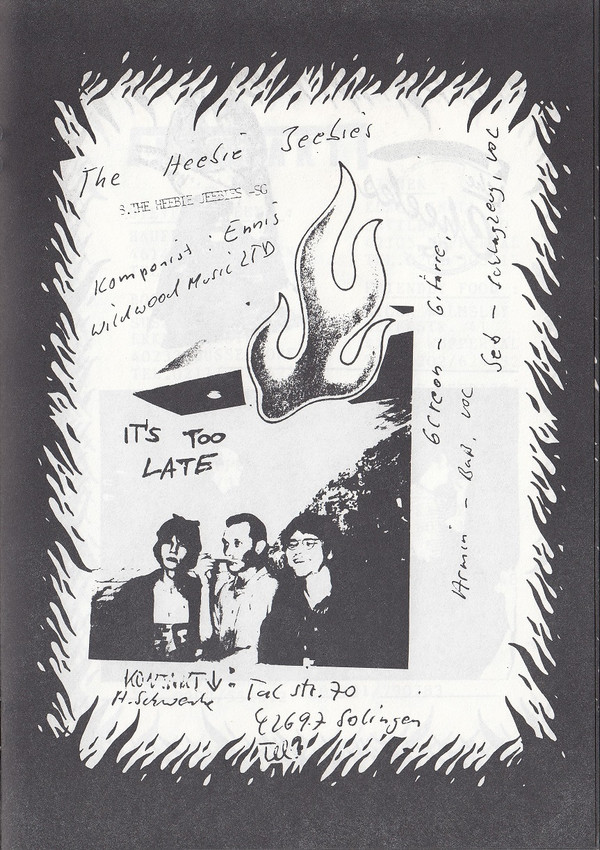 The Heebie Jeebies
3. THE HEEBIE JEEBIES -SG
Komponist: Ennis
Wildwood Music LTD
IT'S TOO
LATE
Gereon - Gitarre,
Armin - Baß, voc
Seb - Schlagzeug, voc
KONTAKT ↓:
H. Schwenke
Tal str. 70
42697 Solingen
Tel?